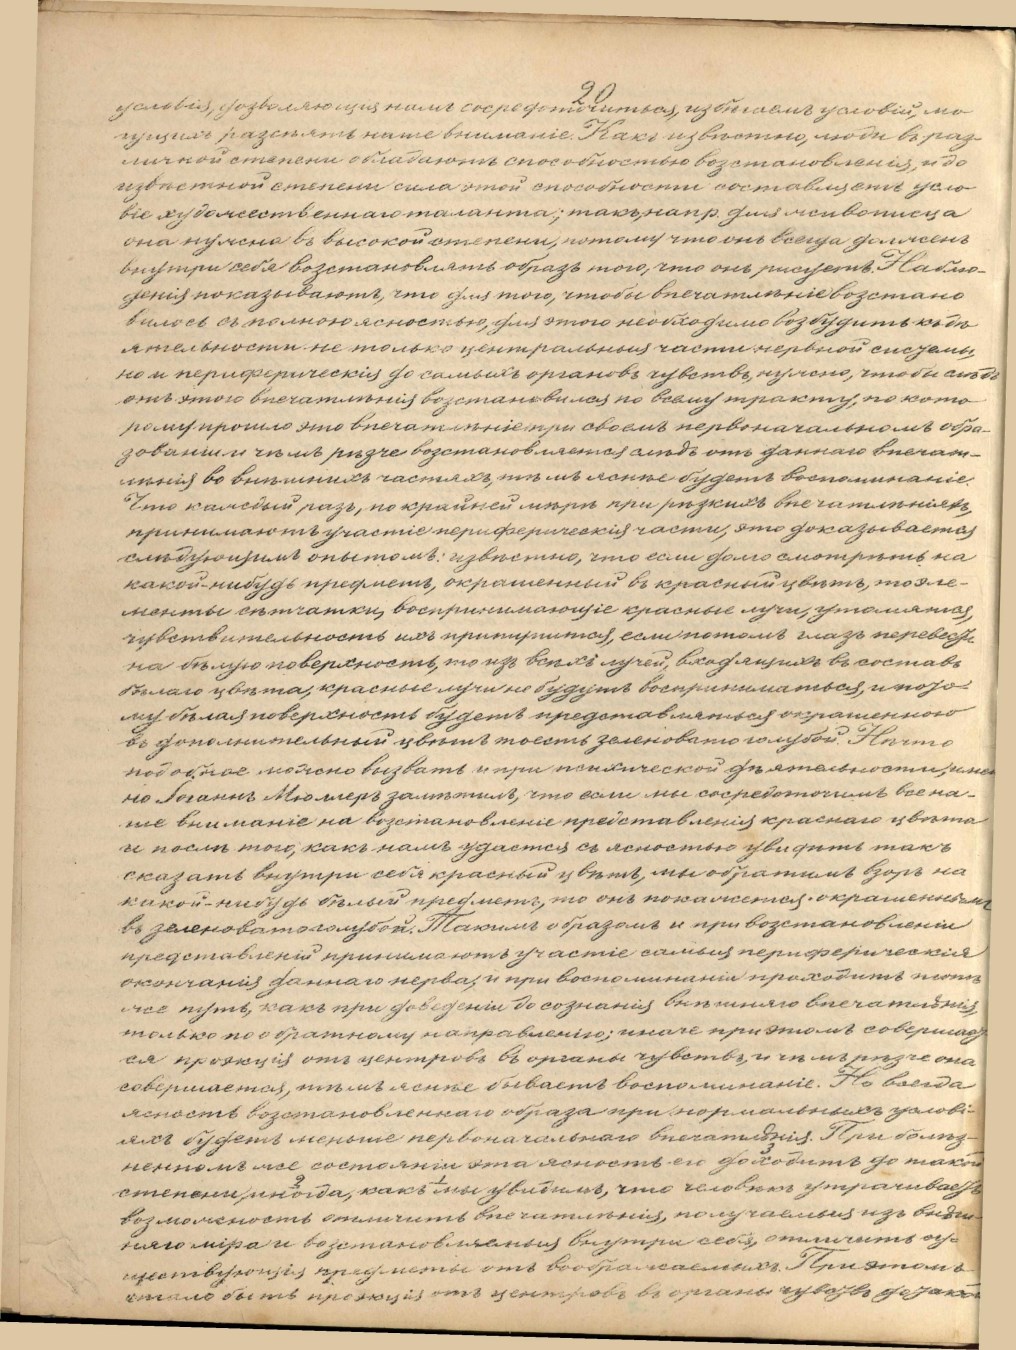 20
условія, дозволяющія намъ сосредоточиться, избѣгаемъ условій, мо-
гущихъ разсѣять наше вниманіе. Какъ извѣстно, люди въ раз-
личной степени обладаютъ способностью возстановленія, и до
извѣстной степени сила этой способности составляетъ усло-
віе художественнаго таланта; такъ, напр. для живописца
она нужна въ высокой степени, потому что онъ всегда долженъ
внутри себя возстановлять образъ того, что онъ рисуетъ. Наблю-
денія показываютъ, что для того, чтобы впечатлѣніе возстано
вилось съ полною ясностью, для этого необходимо возбудить къ дѣ
ятельности не только центральныя части нервной системы,
но и периферическія до самыхъ органовъ чувствъ, нужно, чтобы слѣдъ
отъ этого впечатлѣнія возстановился по всему тракту, по кото
рому прошло это впечатлѣніе при своемъ первоначальномъ обра-
зованіи и чѣмъ рѣзче возстановляется слѣдъ отъ даннаго впечат-
лѣнія во внѣшнихъ частяхъ, тѣмъ яснѣе будетъ воспоминаніе.
Что каждый разъ, по крайней мѣрѣ при рѣзкихъ впечатлѣніяхъ,
принимаютъ участіе периферическія части, это доказывается
слѣдующимъ опытомъ: извѣстно, что если долго смотрѣть на
какой-нибудь предметъ, окрашенный въ красный цвѣтъ, то эле-
менты сѣтчатки, воспринимающіе красные лучи, утомятся,
чувствительность ихъ притупится, если потомъ глазъ переведемъ
на бѣлую поверхность, то изъ всѣхъ лучей, входящихъ въ составъ
бѣлаго цвѣта, красные лучи не будутъ восприниматься, и пото-
му бѣлая поверхность будетъ представляться окрашенною
въ дополнительный цвѣтъ тоесть зеленоватоголубой. Нѣчто
подобное можно вызвать и при психической дѣятельности, имен
но Іоганнъ Мюллеръ замѣтилъ, что если мы сосредоточимъ все на-
ше вниманіе на возстановленіе представленія краснаго цвѣта
и послѣ того, какъ намъ удастся съ ясностью увидѣть такъ
сказать внутри себя красный цвѣтъ, мы обратимъ взоръ на
какой-нибудь бѣлый предметъ, то онъ покажется окрашеннымъ
въ зеленоватоголубой. Такимъ образомъ и при возстановленіи
представленій принимаютъ участіе самыя периферическія
окончанія даннаго нерва, и при воспоминаніи проходитъ тотъ
же путь, какъ при доведеніи до сознанія внѣшняго впечатлѣнія,
только по обратному направленію; иначе при этомъ совершает
ся проэкція отъ центровъ въ органы чувствъ, и чѣмъ рѣзче она
совершается, тѣмъ яснѣе бываетъ воспоминаніе. Но всегда
ясность возстановленнаго образа при нормальныхъ услові-
яхъ будетъ меньше первоначальнаго впечатлѣнія. При болѣз-
ненномъ же состояніи эта ясность его доходитъ до такой
степени, иногда, какъ мы увидимъ, что человѣкъ утрачиваетъ
возможность отличить впечатлѣнія, получаемыя изъ внѣш-
няго міра и возстановляемыя внутри себя, отличить су-
ществующія предметы отъ воображаемыхъ. При этомъ
стало быть проэкція отъ центровъ въ органы чувствъ